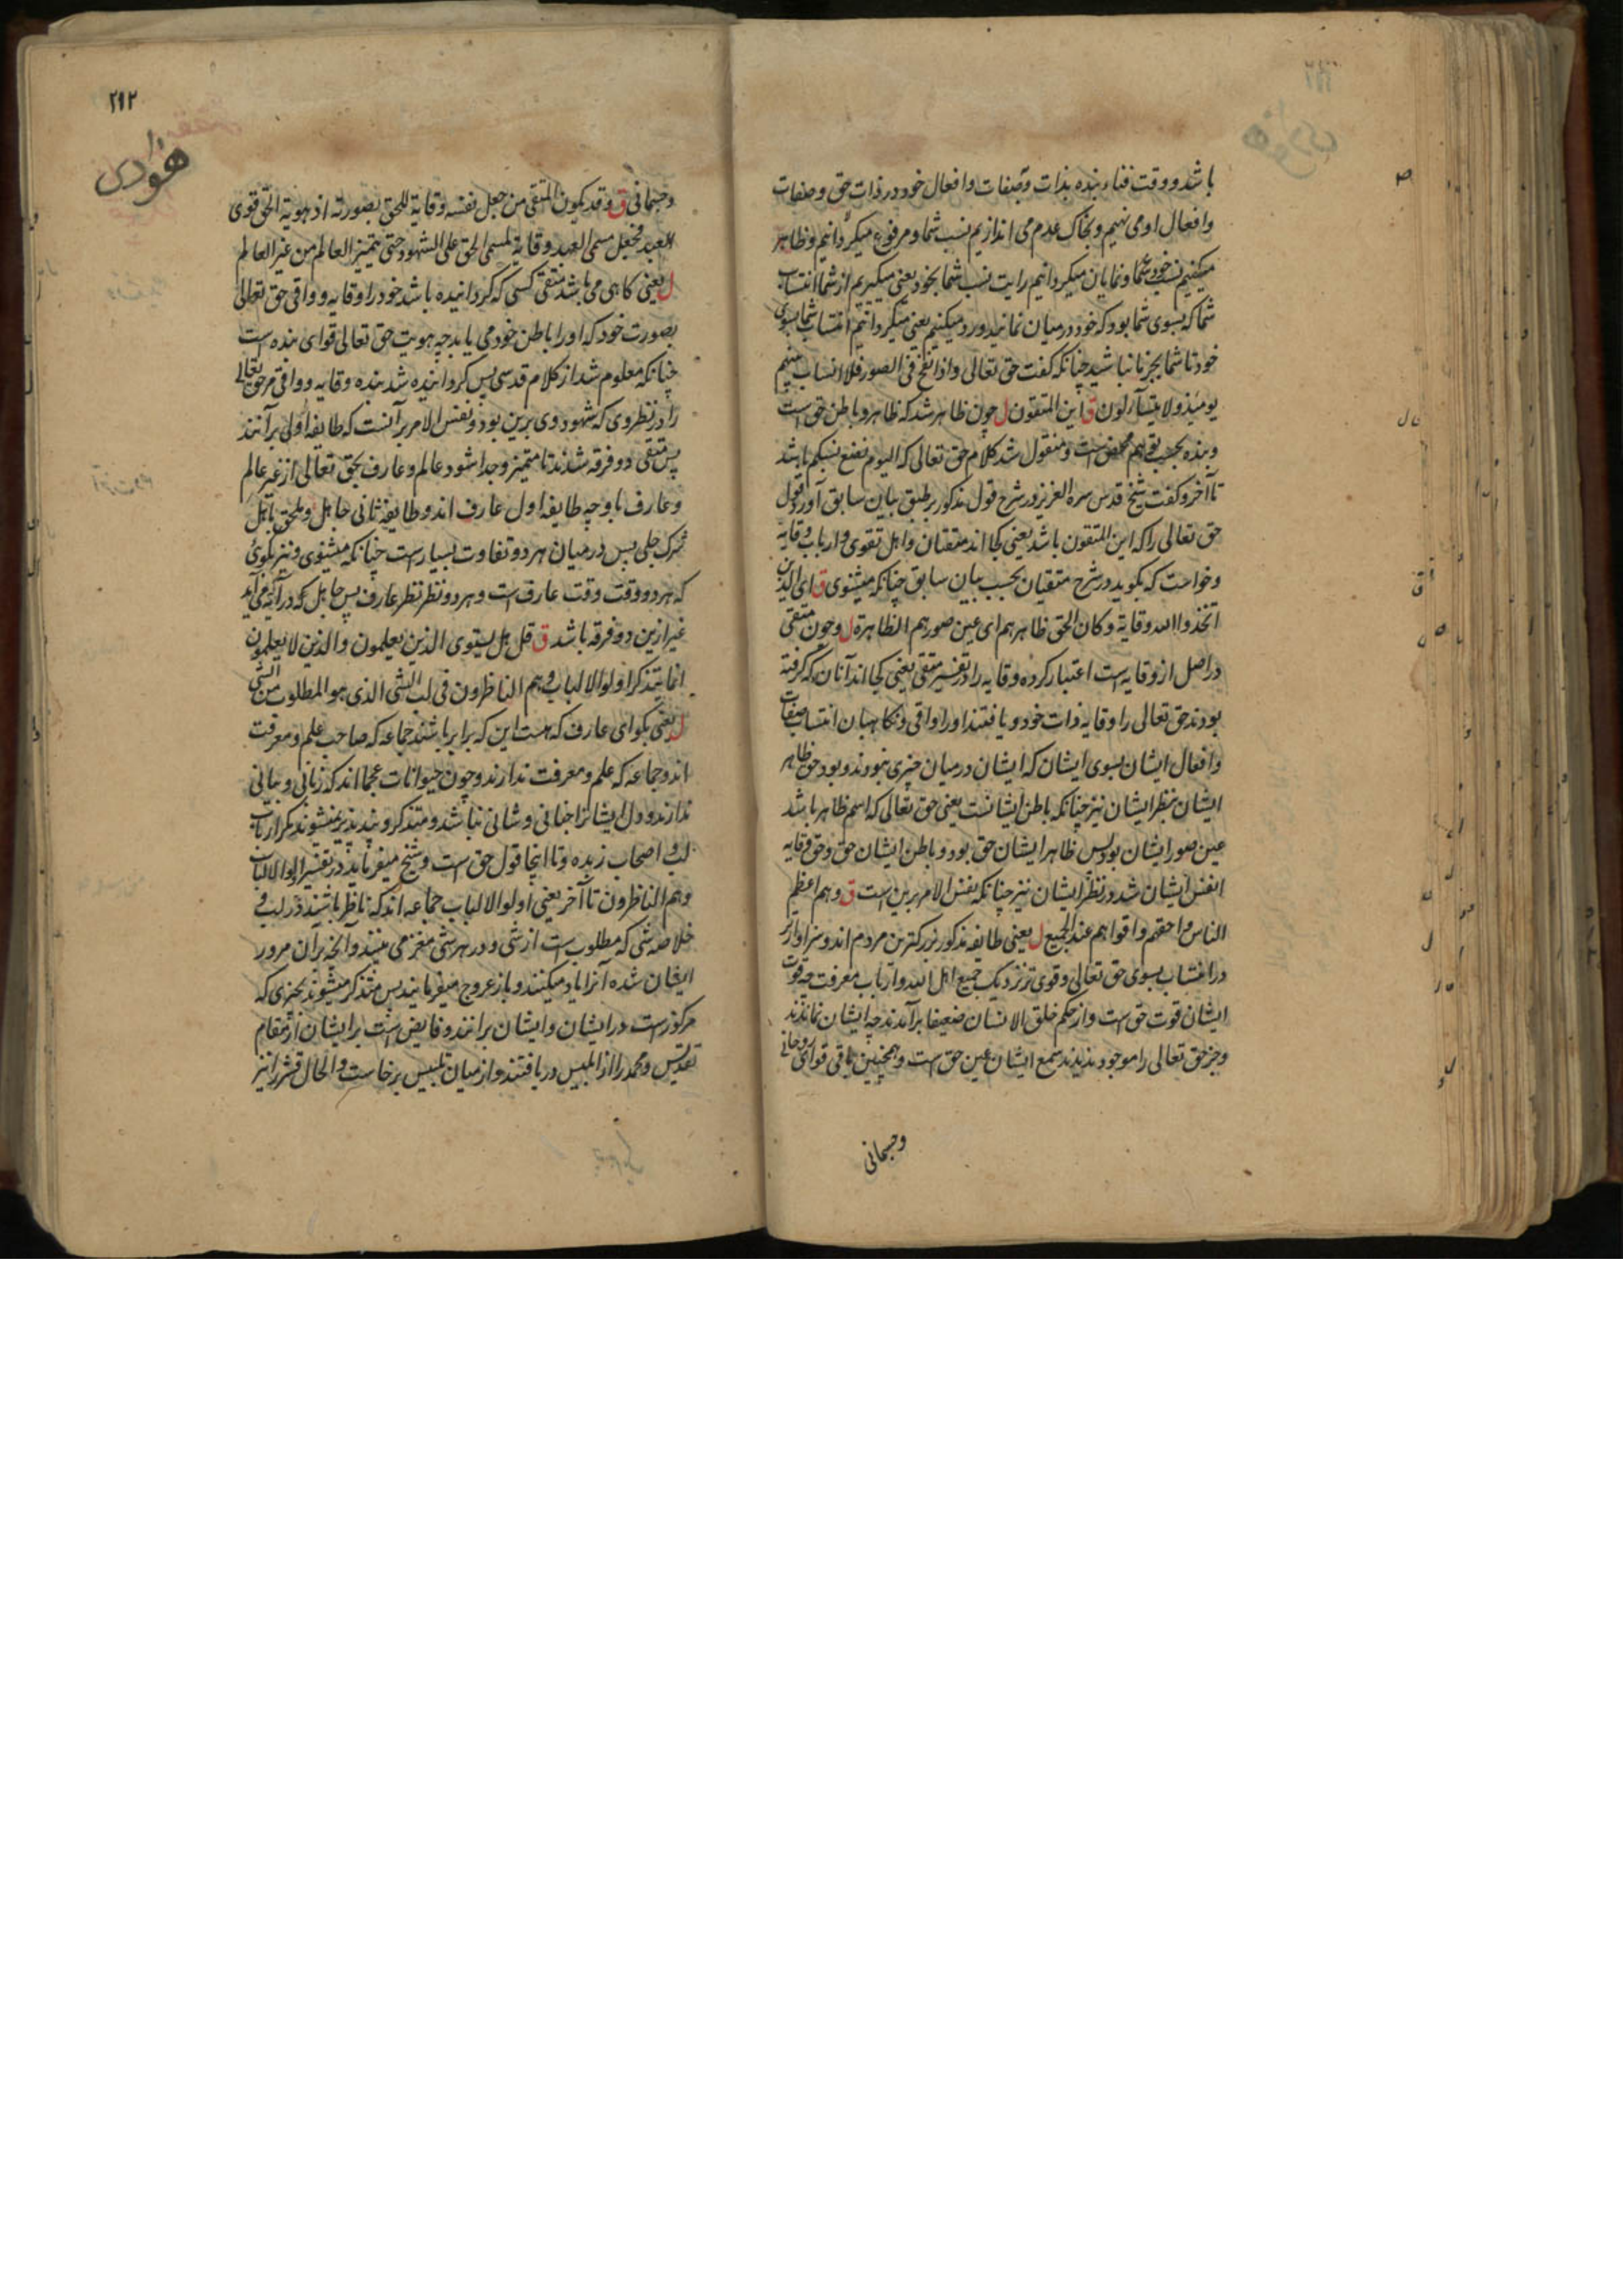 باشد و وقت فناء بنده بذات و بصفات و افعال خود در ذات حق و صفات
و افعال او می نهیم و بخاک عدم می اندازیم نسب شما و مرفوع میگردانیم و ظاهر
میکنیم نسب خود شما و نمایان میگردانیم رایت نسب شما بخود یعنی میگیریم از شما انتساب
شما که بسوی شما بود که خود در میان نمانید و رد میکنیم یعنی میگردانیم انتساب شما بسوی
خود تا شما بجز ما نباشید چنانکه گفت حق تعالی و اذا نفخ فی الصور فلا انساب بینهم
یومئذ و لا یتسآءلون ق این المتقون ل چون ظاهر شد که ظاهر و باطن حق است
و بنده بحسب توهم محض است و منقول شد کلام حق تعالی که الیوم نضع نسبکم باشد
تا آخر و گفت شیخ قدس سره العزیز در شرح قول مذکور بر طبق بیان سابق آورد قول
حق تعالی را که این المتقون باشد یعنی کجا اند متقیان و اهل تقوی و ارباب وقایه
و خواست که بگوید در شرح متقیان بحسب بیان سابق چنانکه میشنوی ق ای الذین
اتخذوا الله وقایة و کان الحق ظاهرهم ای عین صورهم الظاهرة ل و چون متقی
در اصل از وقایه است اعتبار کرده وقایه را در تفسیر متقی یعنی کجا اند آنان که گرفته
بودند حق تعالی را وقایه ذات خود و یافتند او را واقی و نگاهبان انتساب صفات
و افعال ایشان بسوی ایشان که ایشان در میان چیزی نبودند و بود حق ظاهر
ایشان بنظر ایشان نیز چنانکه باطن ایشانست یعنی حق تعالی که اسم ظاهر باشد
عین صور ایشان بود پس ظاهر ایشان حق بود و باطن ایشان حق و حق وقایه
انفس ایشان شد در نظر ایشان نیز چنانکه نفس الامر برین است ق و هم اعظم
الناس و احقهم و اقواهم عند الجمیع ل یعنی طایفه مذکور بزرکترین مردم اند و سزاوارتر
در انتساب بسوی حق تعالی و قوی تر نزدیک جمیع اهل الله و ارباب معرفت چه قوت
ایشان قوت حق است و از حکم خلق الانسان ضعیفا برآمدند چه ایشان نماندند
و جز حق تعالی را موجود ندیدند سمع ایشان عین حق است و همچنین باقی قوای روحانی
وجسمانی
۲۹۲
هودی
وجسمانی ق و قد یکون المتقی من جعل نفسه وقایة للحق بصورته اذ هویة الحق قوی
العبد فجعل مسمی العبد وقایة لمسمی الحق علی الشهود حتی یتمیز العالم من غیر العالم
ل یعنی کاهی می باشد متقی کسی که گردانیده باشد خود را وقایه و واقی حق تعالی
بصورت خود که او را باطن خود می یابد چه هویت حق تعالی قوای بنده است
چنانکه معلوم شد از کلام قدسی پس گردانیده شد بنده وقایه و واقی مر حق تعالی
را در نظر وی که شهود وی برین بود و نفس الامر بر آنست که طایفه اولی بر آنند
پس متقی دو فرقه شدند تا متمیز و جدا شود عالم و عارف بحق تعالی از غیر عالم
و عارف باوچه طایفه اول عارف اند و طایفه ثانی جاهل و ملحق باهل
شرک جلی پس در میان هر دو تفاوت بسیار است چنانکه میشنوی و نیز بگوی
که هر دو وقت وقت عارف است و هر دو نظر نظر عارف پس جاهل که در آیه می آید
غیر ازین دو فرقه باشد ق قل هل یستوی الذین یعلمون و الذین لا یعلمون
انما یتذکر اولوا الالباب و هم الناظرون فی لب الشی الذی هو المطلوب من الشی
ل یعنی بگو ای عارف که هست این که برابر باشند جماعه که صاحب علم و معرفت
اند و جماعه که علم و معرفت ندارند و چون حیوانات عجما اند که زبانی و بیانی
ندارند و دل ایشانرا جنانی و شانی نباشد و متذکر و پند پذیر نمیشوند مگر ارباب
لب و اصحاب زبده و تا اینجا قول حق است و شیخ میفرماید در تفسیر اولوا الالباب
و هم الناظرون تا آخر یعنی اولوا الالباب جماعه اند که ناظر باشند در لب و
خلاصه شی که مطلوب است از شی و در هر شی مغز می بینند و آنچه بران مرور
ایشان شده آنرا یاد میکنند و باز عروج میفرمایند پس متذکر میشوند بچیزی که
مرکوز است در ایشان و ایشان برانند و فایض است بر ایشان از مقام
تقدیس و محمد را از ابلیس دریافتند و از میان تلبیس برخاست و الحال قشر را نیز